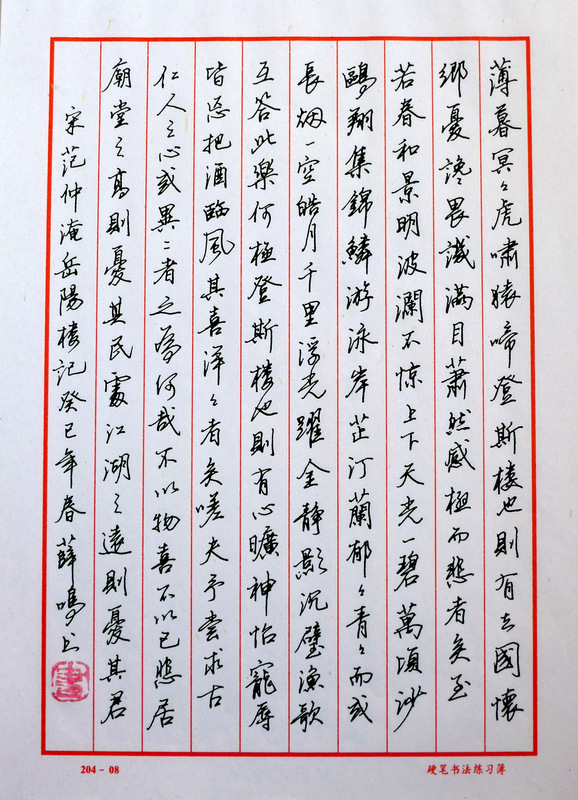 薄暮冥々虎啸猿啼登斯楼也則有去國懷
鄉憂讒畏譏滿目蕭然感極而悲者矣至
若春和景明波瀾不惊上下天光一碧萬頃沙
鷗翔集錦鱗游泳岸芷汀蘭郁々青々而或
長烟一空皓月千里浮光躍金静影沉璧漁歌
互答此樂何極登斯楼也則有心曠神怡寵辱
皆忘把酒臨風其喜洋々者矣嗟夫予尝求古
仁人之心或異二者之為何哉不以物喜不以己悲居
廟堂之高則憂其民處江湖之遠則憂其君
宋范仲淹岳陽楼記癸巳年春薛鳴上
書
204-08
硬笔书法练习簿